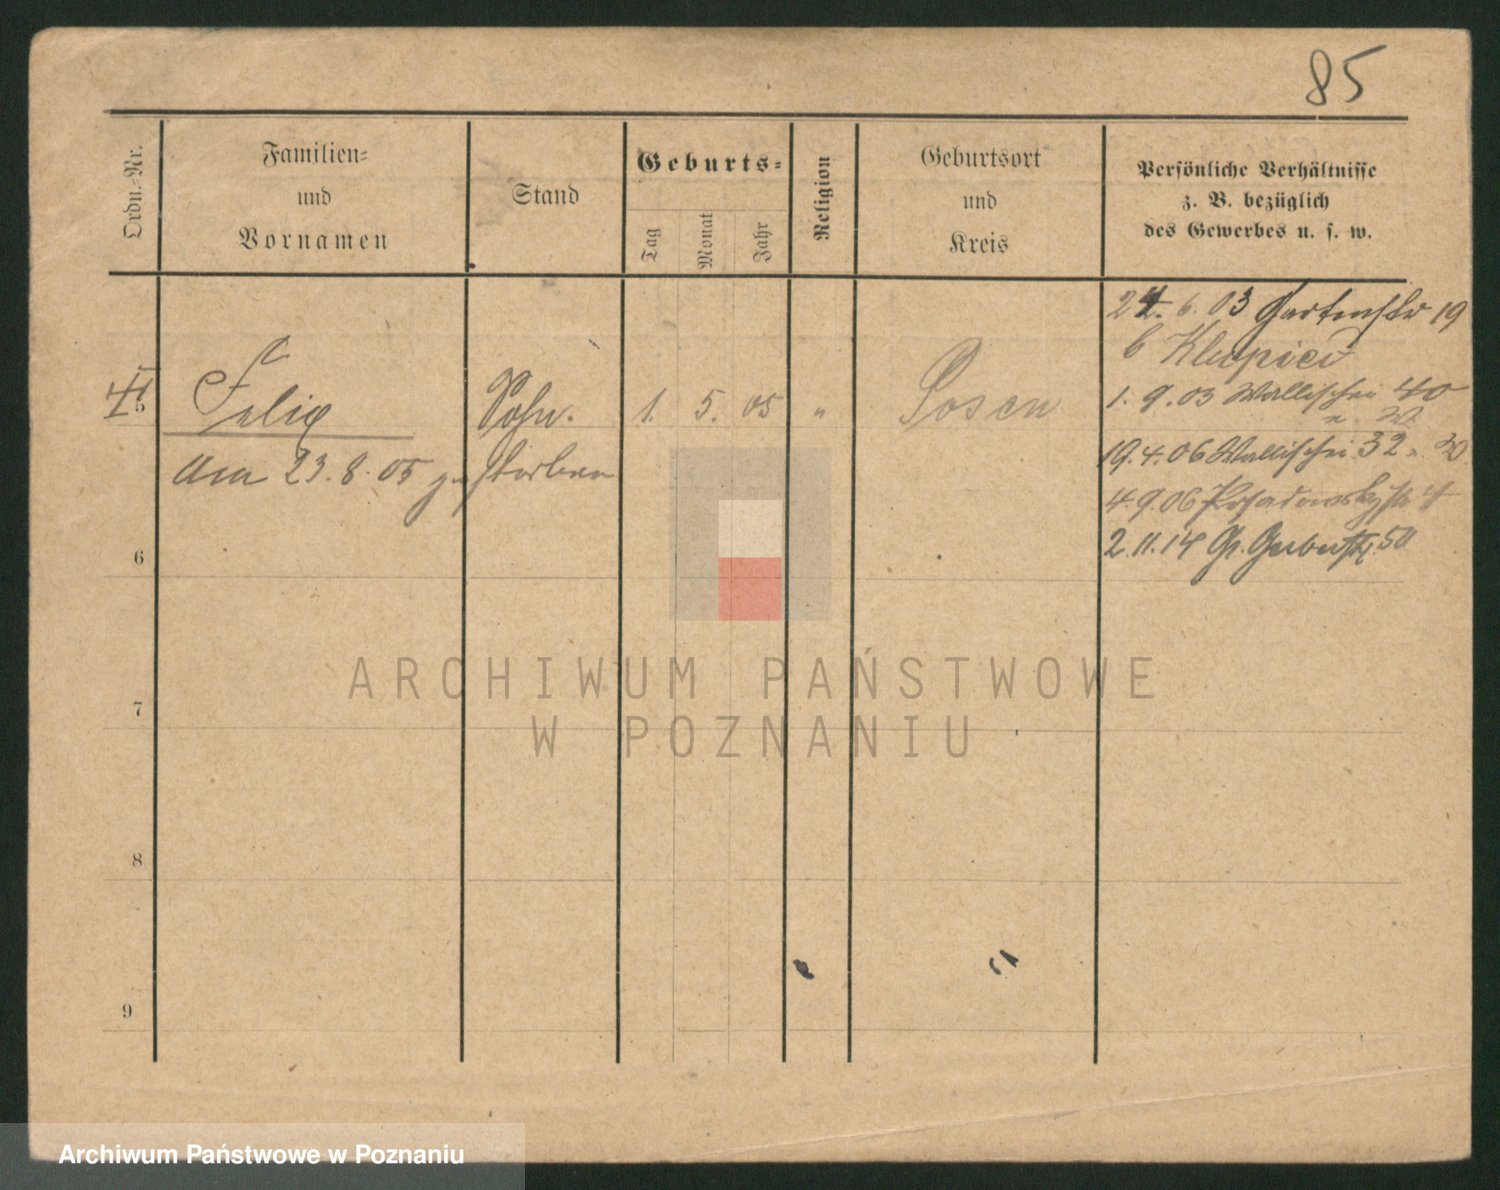 85
Ordn.-Nr.
Familien-
und
Vornamen
Stand
Geburts-
Tag
Monat
Jahr
Religion
Geburtsort
und
Kreis
Persönliche Verhältnisse
z. B. bezüglich
des Gewerbes u. s. w.
24. 6. 03 Gartenstr 19
b
1. 9. 03 Wallischei 40
5 Felix Sohn. 1. 5. 05 " Posen
19. 4. 06 Wallischei 32
am 23. 8. 05 gestorben
4. 9. 06 Posadowskystr 4
2. 11. 14 Gr. Gerberstr. 50
6
7
8
9
ARCHIWUM PAŃSTWOWE
W POZNANIU
Archiwum Państwowe w Poznaniu